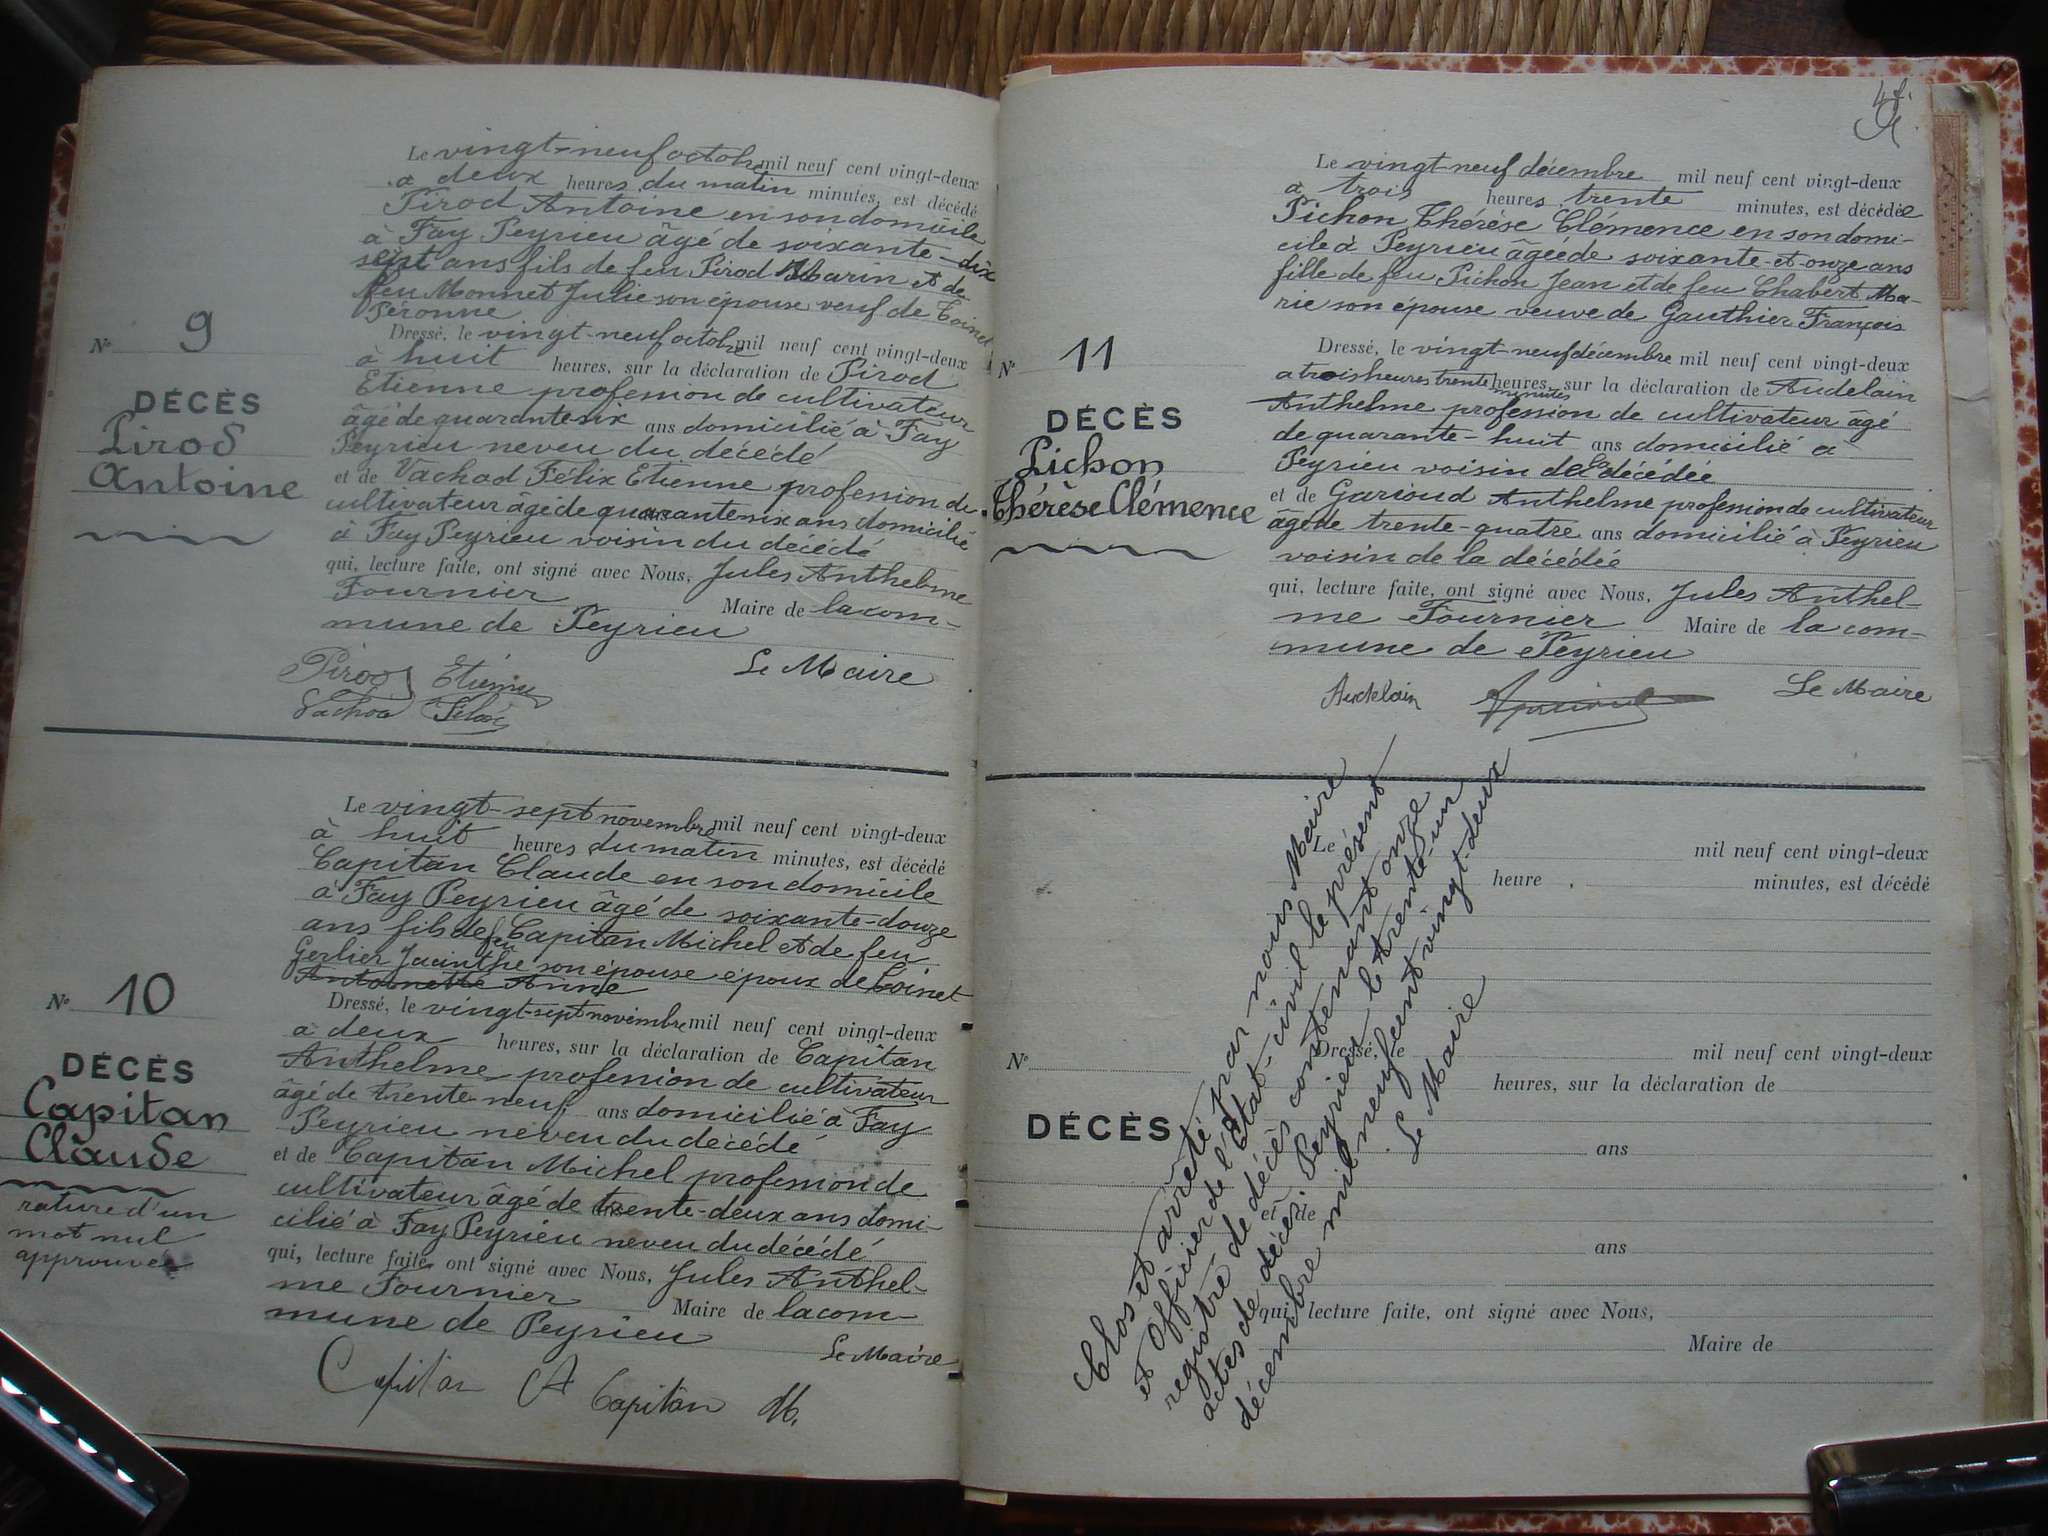 Le vingt-neuf octobre mil neuf cent vingt-deux
à deux heures du matin minutes, est décédé
Pirod Antoine en son domicile
à Fay Peyrieu âgé de soixante-dix
sept ans fils de feu Pirod Marin et de
feu Monnet Julie son épouse veuf de Toinet
Péronne
N° 9
DÉCÈS
Pirod
Antoine
Dressé, le vingt-neuf octobre mil neuf cent vingt-deux
à huit heures, sur la déclaration de Pirod
Etienne profession de cultivateur
âgé de quarante six ans domicilié à Fay
Peyrieu neveu du décédé
et de Vachod Félix Etienne profession de
cultivateur âgé de quarante six ans domicilié
à Fay Peyrieu voisin du décédé
qui, lecture faite, ont signé avec Nous, Jules Anthelme
Fournier Maire de la com-
mune de Peyrieu
Le Maire
Pirod Etienne
Vachod Félix
Le vingt-sept novembre mil neuf cent vingt-deux
à huit heures du matin minutes, est décédé
Capitan Claude en son domicile
à Fay Peyrieu âgé de soixante-douze
ans fils de feu Capitan Michel et de feu
Gerlier Jacinthe son épouse époux de Toinet
Antoinette Anne
N° 10
DÉCÈS
Capitan
Claude
rature d'un
mot nul
approuvée
Dressé, le vingt-sept novembre mil neuf cent vingt-deux
à deux heures, sur la déclaration de Capitan
Anthelme profession de cultivateur
âgé de trente-neuf ans domicilié à Fay
Peyrieu neveu du décédé
et de Capitan Michel profession de
cultivateur âgé de trente-deux ans domi-
cilié à Fay Peyrieu neveu du décédé
qui, lecture faite, ont signé avec Nous, Jules Anthel-
me Fournier Maire de la com-
mune de Peyrieu
Le Maire
Capitan A Capitan M.
Le vingt-neuf décembre mil neuf cent vingt-deux
à trois heures trente minutes, est décédée
Pichon Thérèse Clémence en son domi-
cile à Peyrieu âgée de soixante-et-onze ans
fille de feu Pichon Jean et de feu Chabert Ma-
rie son épouse veuve de Gauthier François
N° 11
DÉCÈS
Pichon
Thérèse Clémence
Dressé, le vingt-neuf décembre mil neuf cent vingt-deux
a trois heures trente minutes heures, sur la déclaration de Audelain
Anthelme profession de cultivateur âgé
de quarante-huit ans domicilié à
Peyrieu voisin de la décédée
et de Garioud Anthelme profession de cultivateur
âgé de trente-quatre ans domicilié à Peyrieu
voisin de la décédée
qui, lecture faite, ont signé avec Nous, Jules Anthel-
me Fournier Maire de la com-
mune de Peyrieu
Le Maire
Audelain
Le mil neuf cent vingt-deux
heure , minutes, est décédé
N°
DÉCÈS
Dressé, le mil neuf cent vingt-deux
heures, sur la déclaration de
ans
et de
ans
qui, lecture faite, ont signé avec Nous,
Maire de
Clos et arrêté par nous Maire
et Officier de l'Etat-civil le présent
registre de décès contenant onze
actes de décès. Peyrieu le trente-un
décembre mil neuf cent vingt-deux
Le Maire